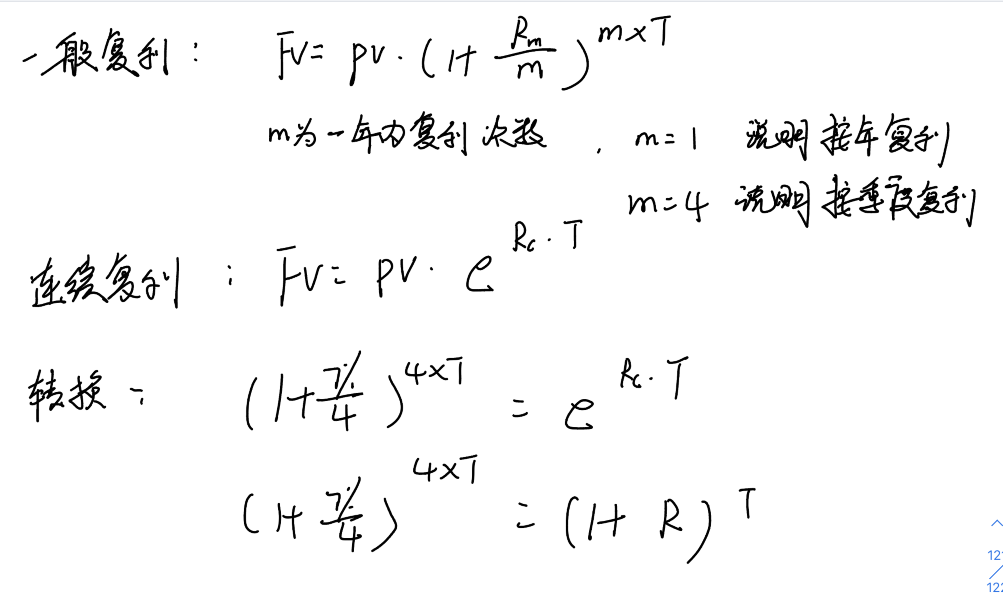 一般复利： FV = PV · (1 + Rm/m)^(m×T)
m为一年内复利次数 ， m=1 说明按年复利
m=4 说明按季度复利
连续复利 ： FV = PV · e^(Rc · T)
转换： (1 + 7%/4)^(4×T) = e^(Rc · T)
(1 + 7%/4)^(4×T) = (1 + R)^T
121/122